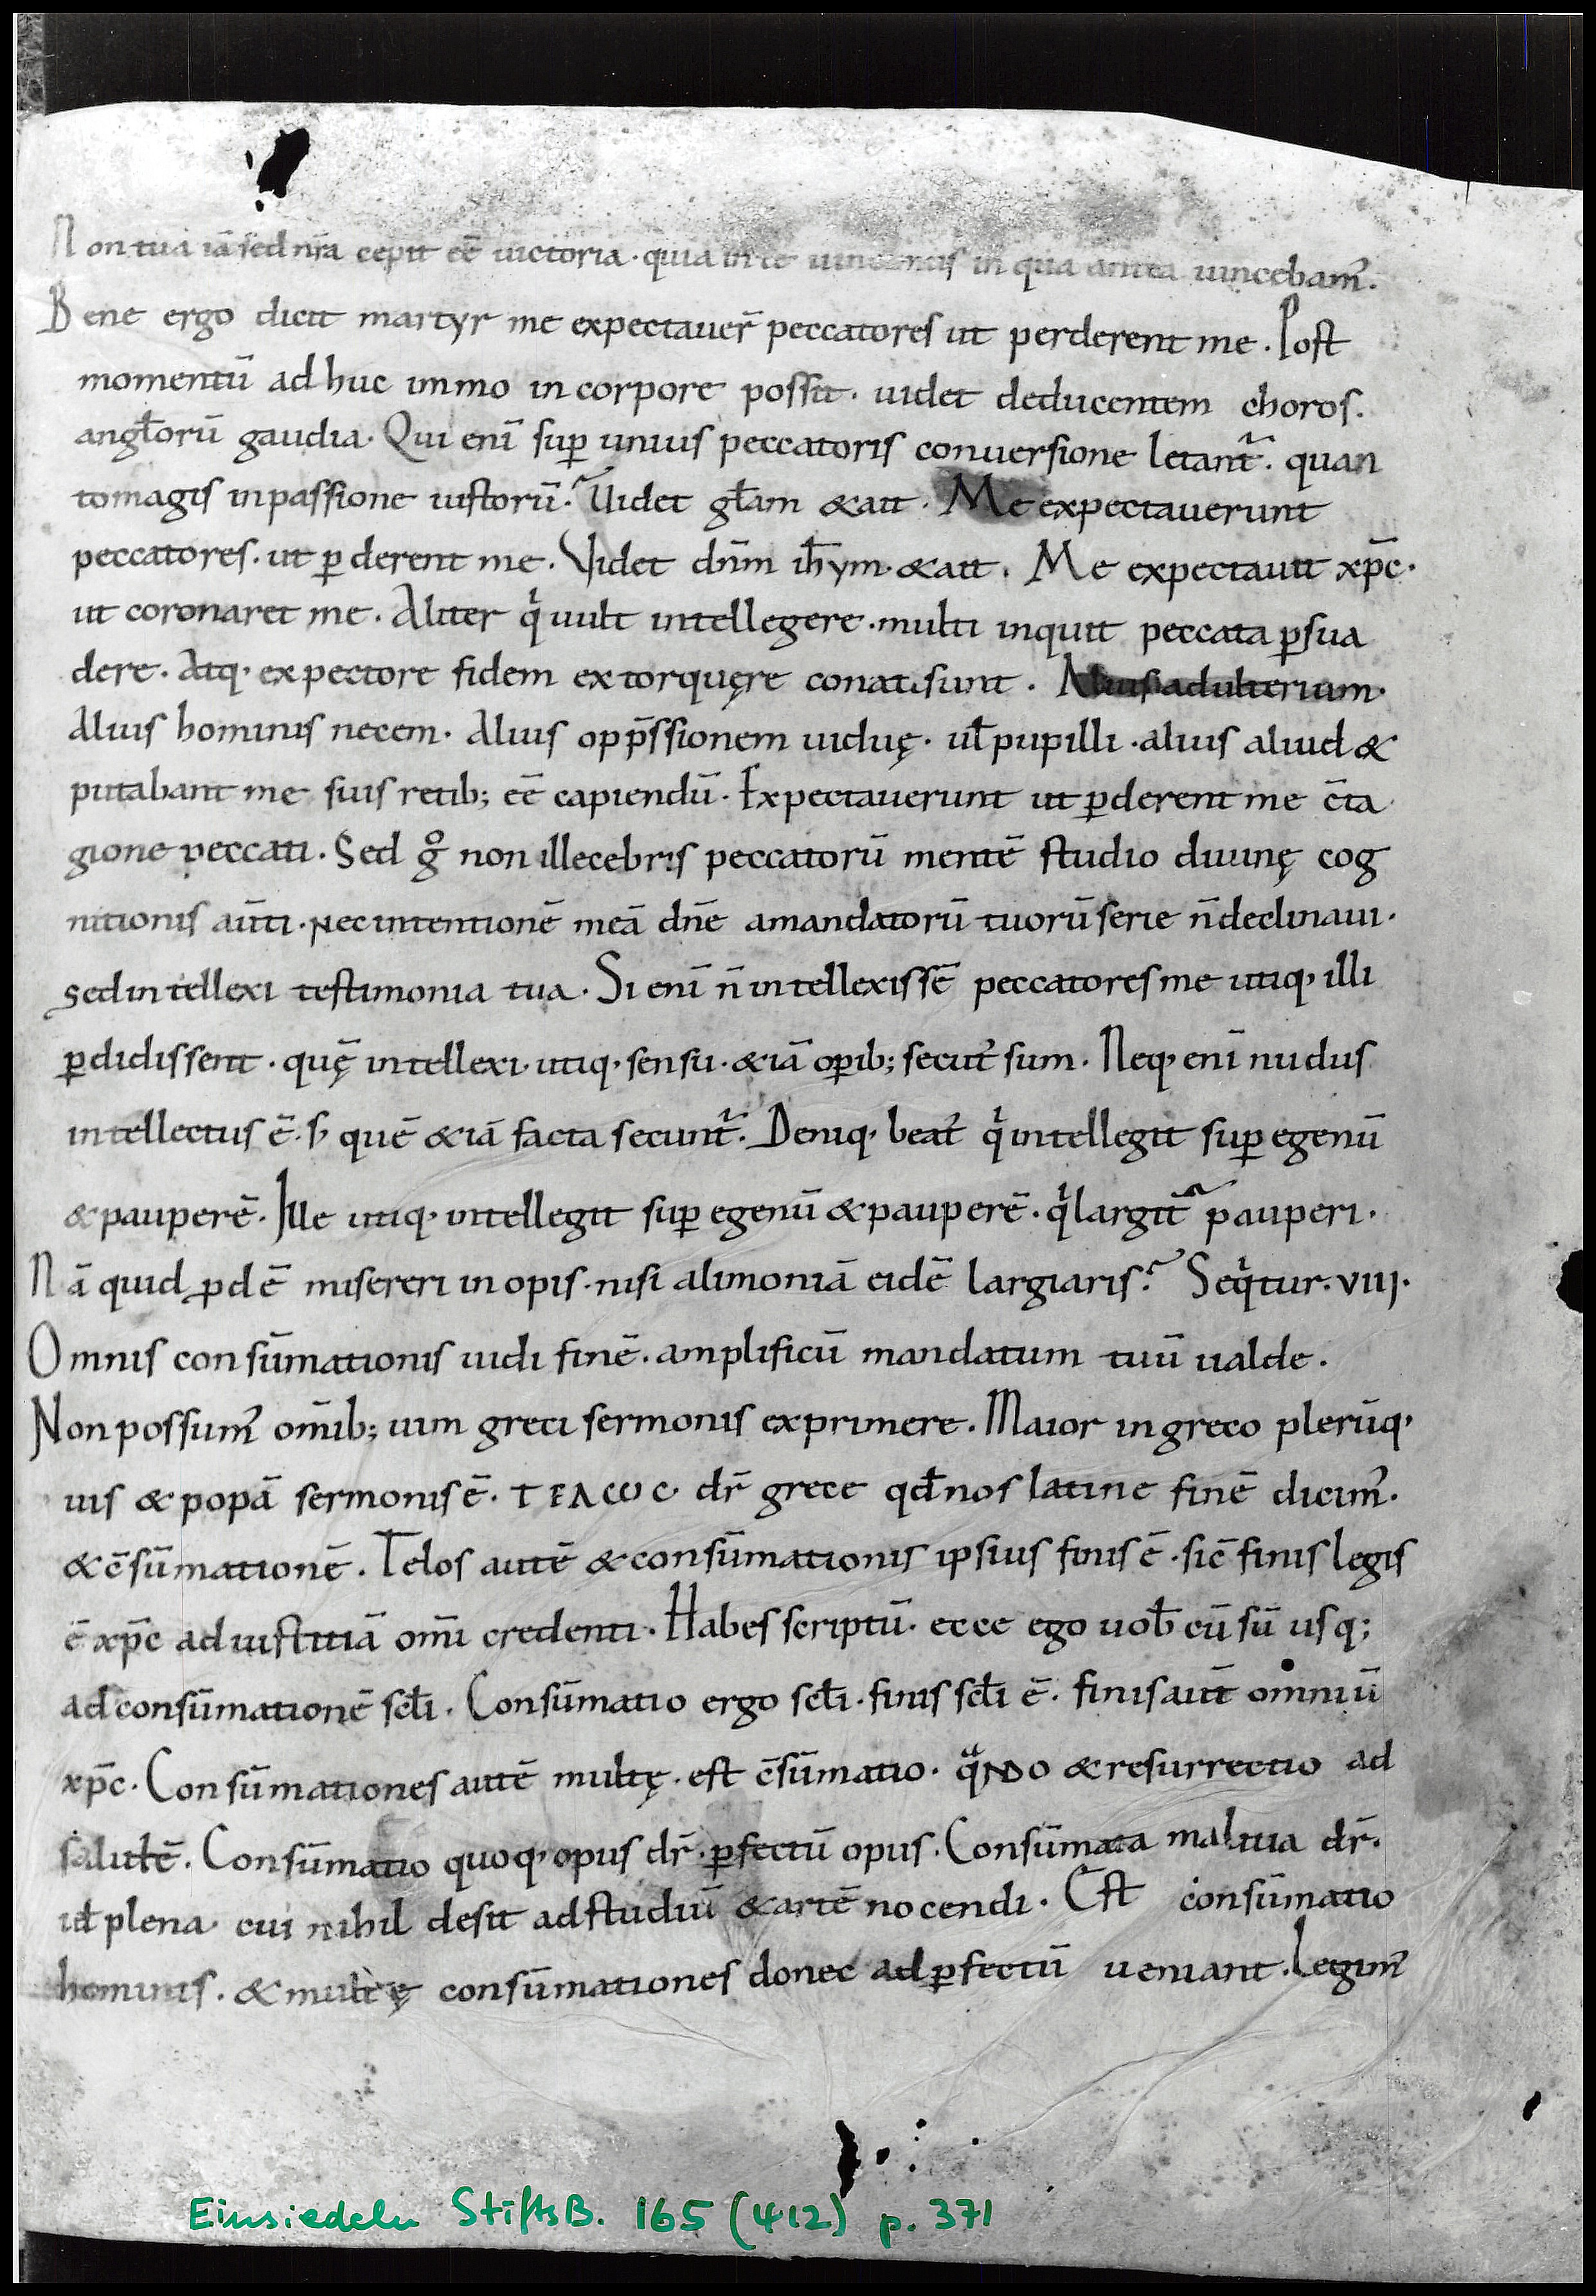 Non tua iā sed nr̄a cepit eē uictoria · quia in te uincimis in qua antea uincebam᷒.
Bene ergo dicit martyr me expectauer̄ peccatores ut perderent me . Post
momentū adhuc immo in corpore possit · uidet deducentem choros .
angłorū gaudia · Qui eni᷒ suꝑ unius peccatoris conuersione letant᷑ . quan
tomagis inpassione iustorū · Uidet głam & ait · Me expectauerunt
peccatores · ut ꝑderent me . Videt dn̄m ih̄ym · & ait . Me expectauit xp̄c ·
ut coronaret me . Aliter qͥ uult intellegere · multi inquit peccata ꝑsua
dere . Atq· expectore fidem extorquęre conati sunt . Alius adulterium ·
Alius hominis necem · Alius opp̄ssionem uiduę · uł pupilli · alius aliud &
putabant me suis retib; eē capiendū · Expectauerunt ut ꝑderent me c̄ta
gione peccati . Sed gͦ non illecebris peccatorū mentē studio diuinę cog
nitionis au̅ti · Nec intentionē meā dn̄e a mandatorū tuorū serie n̄ declinaui ·
sed intellexi testimonia tua . Si enī n̄ intellexissē peccatores me utiq· illi
ꝑdidissent · quę̄ intellexi · utiq· sensu · & iā oꝑib; secut᷒ sum . Neq· enī nudus
intellectus ē · s; quē & iā facta secunt᷑ . Deniq· beat᷒ qͥ intellegit suꝑ egenū
& pauperē . Ille utiq· intellegit suꝑ egenū & pauperē · qͥ largit᷑ pauperi .
Nā quid ꝓdē misereri inopis · nisi alimoniā eidē largiaris ? Seqͥtur . viij .
Omnis consūmationis uidi finē . amplificū mandatum tuū ualde .
Non possum᷒ om̄ib; uim greci sermonis exprimere . Maior in greco plerūq·
uis & popā sermonis ē . ΤΕΛωC · dr̄ grece qd̄ nos latine finē dicim᷒ .
& c̄sūmationē . Telos autē & consūmationis ipsius finis ē · sic̄ finis legis
ē xp̄c ad iustitiā om̄i credenti · Habes scriptū · ecce ego uob̄ cū sū usq;
ad consūmationē scłi . Consūmatio ergo scłi · finis scłi ē · finis aūt omniū
xp̄c · Consūmationes autē multę · est c̄sūmatio · qᷓNDO & resurrectio ad
salutē . Consūmatio quoq· opus dr̄ · ꝑfectū opus . Consūmata malitia dr̄ ·
id plena · cui nihil desit ad studiū & artē nocendi · Est consūmatio
hominis . & multę consūmationes donec ad ꝑfectū ueniant . Legim᷒
Einsiedeln StiftsB. 165 (412) p. 371